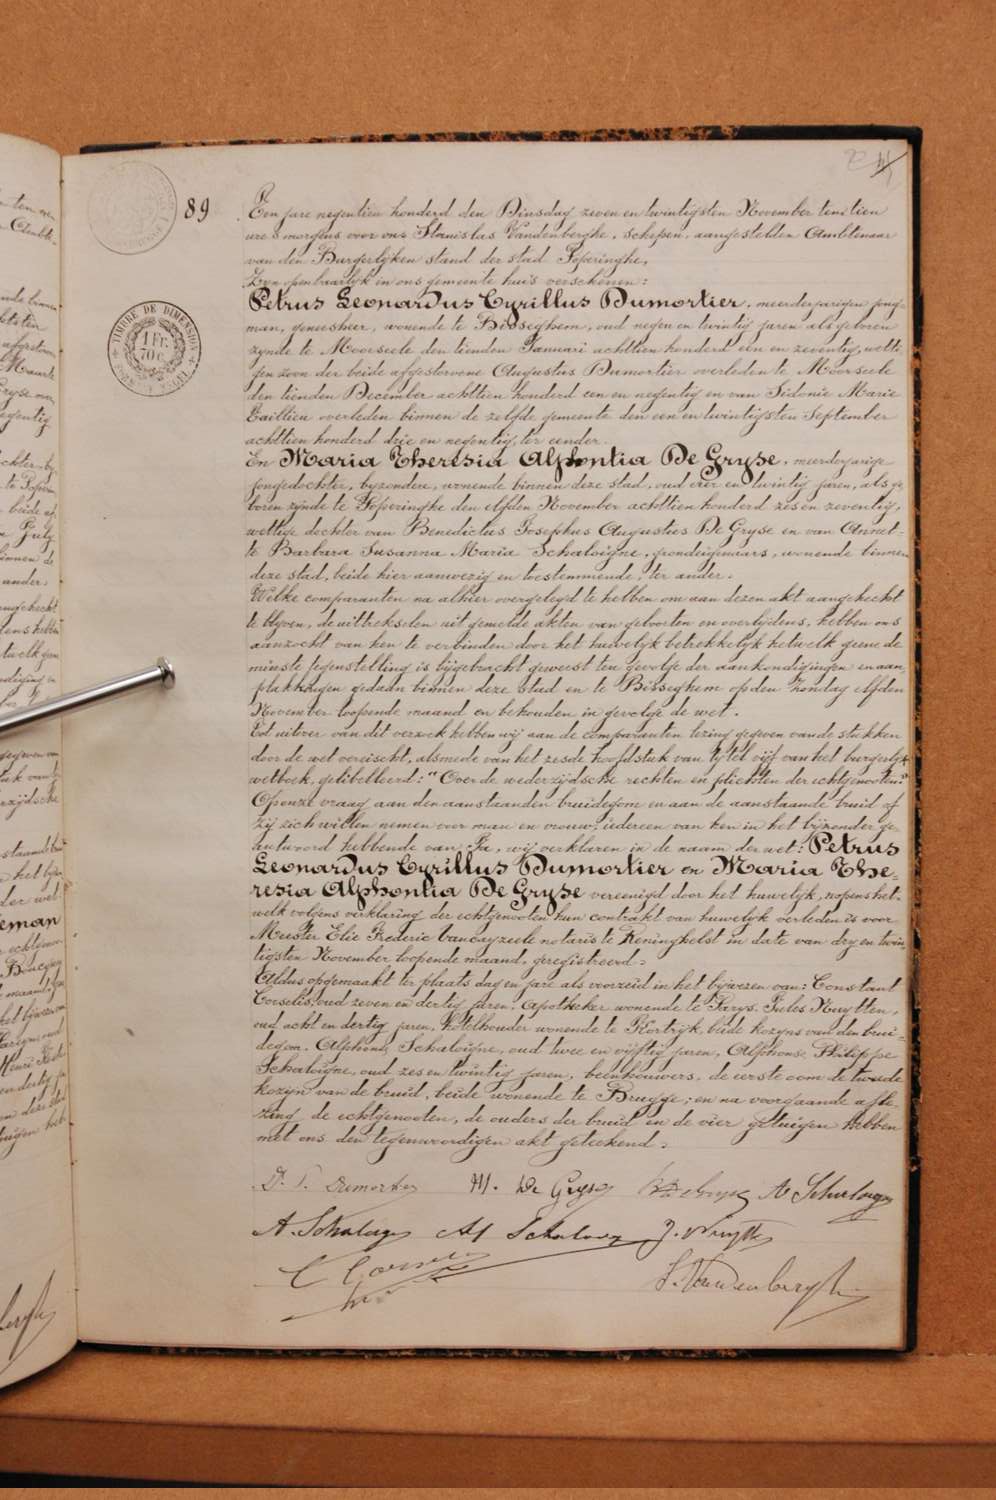 89
TIMBRE DE DIMENSION
1 Fr.
70 c.
Ten jare negentien honderd den Dinsdag zeven en twintigsten November ten tien
ure 's morgens voor ons Stanislas Vandenberghe, schepen, aangestelden Ambtenaar
van den Burgerlyken stand der stad Poperinghe,
Zyn openbaarlyk in ons gemeente huis verschenen:
Petrus Leonardus Cyrillus Dumortier, meerderjarigen jong-
man, geneesheer, wonende te Bisseghem, oud negen en twintig jaren als geboren
zynde te Moorseele den tienden Januari achttien honderd een en zeventig, wetti-
gen zoon der beide afgestorvene Augustus Dumortier overleden te Moorseele
den tienden December achttien honderd een en negentig en van Sidonie Marie
Taillieu overleden binnen de zelfde gemeente den een en twintigsten September
achttien honderd drie en negentig, ter eender.
En Maria Theresia Alphontia De Gryse, meerderjarige
jongedochter, byzondere, wonende binnen deze stad, oud vier en twintig jaren, als ge-
boren zynde te Poperinghe den elfden November achttien honderd zes en zeventig,
wettige dochter van Benedictus Josephus Augustus De Gryse en van Annet-
te Barbara Susanna Maria Schaloigne, grondeigenaars, wonende binnen
deze stad, beide hier aanwezig en toestemmende, ter ander.
Welke comparanten na alhier overgelegd te hebben om aan dezen akt aangehecht
te blyven, de uittrekselen uit gemelde akten van geboorten en overlydens, hebben ons
aanzocht van hen te verbinden door het huwelyk betrekkelyk hetwelk geene de
minste tegenstelling is bygebracht geweest ten gevolge der aankondigingen en aan-
plakkingen gedaan binnen deze stad en te Bisseghem op den Zondag elfden
November loopende maand en behouden in gevolge de wet.
Tot uitver van dit verzoek hebben wij aan de comparanten lezing gegeven van de stukken
door de wet vereischt, alsmede van het zesde hoofdstuk van tytel vyf van het burgerlyk
wetboek, gelibelleerd: "Over de wederzijdsche rechten en plichten der echtgenooten."
Op onze vraag aan den aanstaanden bruidegom en aan de aanstaande bruid of
zij zich willen nemen voor man en vrouw; iedereen van hen in het bijzonder ge-
antwoord hebbende van Ja, wij verklaren in de naam der wet: Petrus
Leonardus Cyrillus Dumortier en Maria The-
resia Alphontia De Gryse vereenigd door het huwelyk, nopens het-
welk volgens verklaring der echtgenooten hun contrakt van huwelyk verleden is voor
Meester Elie Frederic Vancayzeele notaris te Reninghelst in date van dry en twin-
tigsten November loopende maand, geregistreerd.
Aldus opgemaakt ter plaats dag en jare als voorzeid in het bijwezen van: Constant
Corselis, oud zeven en dertig jaren, Apotheker wonende te Parys, Jules Nuytten,
oud acht en dertig jaren, hotelhouder wonende te Kortrijk, beide kozyns van den brui-
degom, Alphons Schaloigne, oud twee en vijftig jaren, Alphonse Philippe
Schaloigne, oud zes en twintig jaren, beenhouwers, de eerste oom de tweede
kozyn van de bruid, beide wonende te Brugge; en na voorgaande afle-
zing, de echtgenooten, de ouders der bruid en de vier getuigen hebben
met ons den tegenwoordigen akt geteekend.
Dr. P. Dumortier M. De Gryse Bte de Gryse A Schaloigne
A. Schaloigne J. Nuytten
C Corselis
S. Vandenberghe